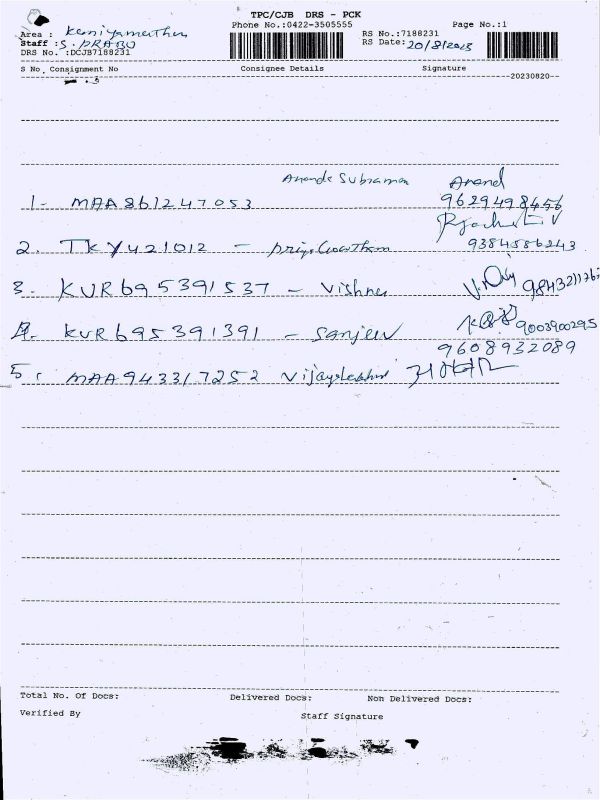 TPC/CJB DRS - PCK
Phone No.:0422-3505555 Page No.:1
Area : Kuniyamuthur RS No.:7188231
Staff : S. PRABU RS Date: 20/8/2023
DRS No. :DCJB7188231
S No Consignment No Consignee Details Signature
20230820
Anand
1- MAA861247053 Anande Subraman 9629498456
2. TKY421012 - Priya Gowtham 9384586243
3. KUR695391537 - Vishnu
4. KUR695391391 - Sanjeev 9003900295
9608932089
5. MAA943317252 Vijayalakshmi
Total No. Of Docs: Delivered Docs: Non Delivered Docs:
Verified By Staff Signature